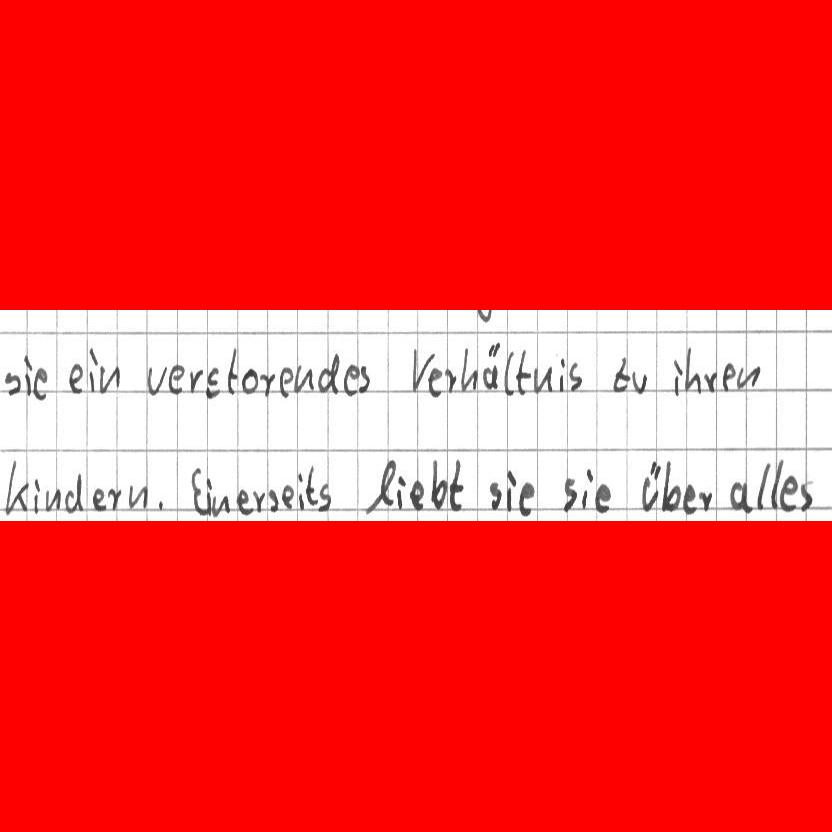 sie ein verstorendes Verhältnis zu ihren
kindern. Einerseits liebt sie sie über alles